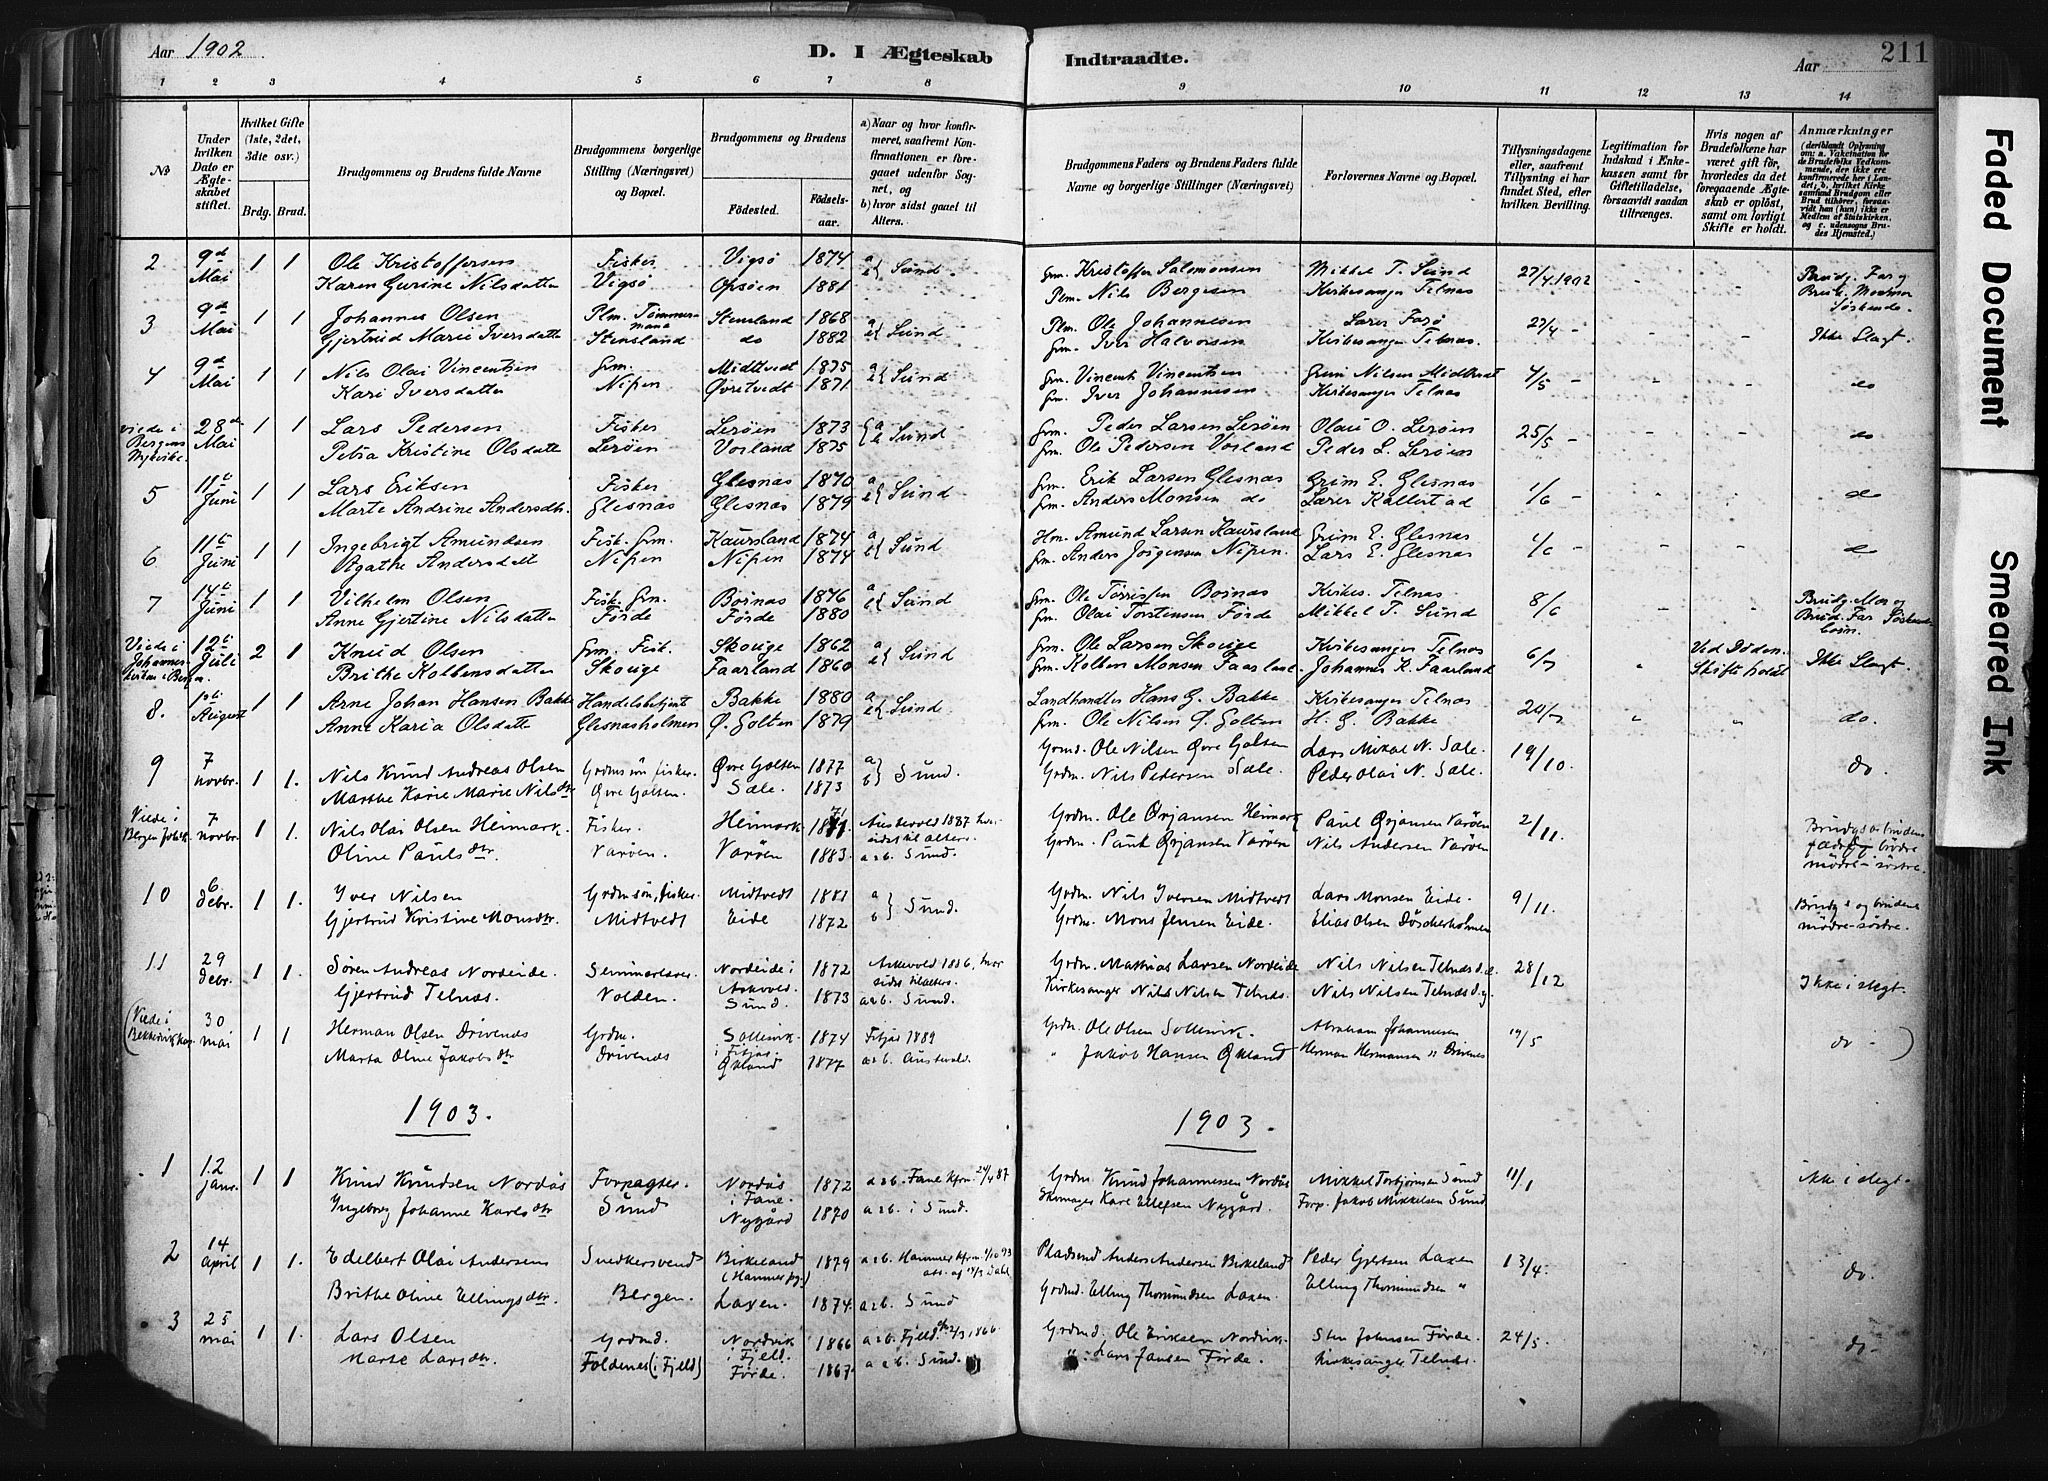 Aar 1902
D. I Ægteskab Indtraadte.
Aar
211
1 2 3 4 5 6 7 8 9 10 11 12 13 14
No
Under hvilken Dato er Ægteskabet stiftet.
Hvilket Gifte (1ste, 2det, 3die osv.)
Brdg. Brud.
Brudgommens og Brudens fulde Navne
Brudgommens borgerlige Stilling (Næringsvei) og Bopæl.
Brudgommens og Brudens
Fødested.
Fødselsaar.
a) Naar og hvor konfirmeret, saafremt Konfirmationen er foregaaet udenfor Sognet, og
b) hvor sidst gaaet til Alters.
Brudgommens Faders og Brudens Faders fulde Navne og borgerlige Stillinger (Næringsvei)
Forlovernes Navne og Bopæl.
Tillysningsdagene eller, saafremt Tillysning ei har fundet Sted, efter hvilken Bevilling.
Legitimation for Indskud i Enkekassen samt for Giftetilladelse, forsaavidt saadan tiltrænges.
Hvis nogen af Brudefolkene har været gift før, hvorledes da det foregaaende Ægteskab er opløst, samt om lovligt Skifte er holdt.
Anmærkninger
(deriblandt Oplysning om: a. Vakcination for de Brudefolks Vedkommende, der ikke ere konfirmerede her i Landet; b. hvilket Kirkesamfund Brudgom eller Brud tilhører, forsaavidt han (hun) ikke er Medlem af Statskirken, og c. udensogns Brudes Hjemsted.)
2 9de Mai 1 1 Ole Kristoffersen Fisker Vigsø 1874 a b Sund. Grm. Kristoffer Salomonsen Mikkel T. Sund 27/4 1902 Brudg. Far og
Karen Gurine Nilsdatter Vigsø Opsøen 1881 Plm. Nils Bergesen Kirkesanger Telnæs Brud. Mormor Søskende.
3 9de Mai 1 1 Johannes Olsen Plm. Tømmermand Stensland 1868 a b Sund Plm. Ole Johannesen Lærer Farø 27/4 - Ikke Slægt.
Gjertrud Marie Iversdatter Stensland do 1882 Grm. Iver Halvorsen Kirkesanger Telnæs.
4 9de Mai 1 1 Nils Olai Vincentsen Grm. Midttvedt 1875 a b Sund Grm. Vincents Vincentsen 4/5 - do
Kari Iversdatter Nipen Øvretvedt 1871 Grm. Iver Johannesen Kirkesanger Telnæs
Viede i Bergens Nykirke. 28de Mai 1 1 Lars Pedersen Fisker Lerøen 1873 a b Sund Grm. Peder Larsen Lerøen Olai O. Lerøen 25/5 - do
Petra Kristine Olsdatter Lerøen Vorland 1875 Grm. Ole Pedersen Vorland Peder L. Lerøen
5 11te Juni 1 1 Lars Eriksen Fisker Glesnæs 1870 a b Sund Grm. Erik Larsen Glesnæs Grim E. Glesnæs 1/6 - do
Marte Andrine Andersdtr. Glesnæs Glesnæs 1879 Grm. Anders Monsen do Lærer Kallestad
6 11te Juni 1 1 Ingebrigt Amundsen Fisk. Grm. Kaursland 1874 a b Sund Hm. Amund Larsen Kaursland Grim E. Glesnæs 1/6 - do
Agathe Andersdatt Nipen Nipen 1874 Grm. Anders Jørgensen Nipen. Lars E. Glesnæs
7 14te Juni 1 1 Vilhelm Olsen Fisk. Grm. Bornæs 1876 a b Sund Grm. Ole Tørrissen Bornæs Kirkes. Telnæs 8/6 Brudg. Mor og
Anne Gjertine Nilsdatter Førde Førde 1880 Grm. Olai Torstensen Førde Mikkel T. Sund Brud. Far Søskendebørn.
Viede i Johanneskirken i Bergen. 12te Juli 2 1 Knud Olsen Grm. Fisk. Skouge 1862 a b Sund Grm. Ole Larsen Skouge Kirkesanger Telnæs 6/7 Ved Døden. Ikke Slægt.
Brithe Kolbensdatter Skouge Faarland 1860 Grm. Kolben Monsen Faarland Johannes K. Faarland Skifte holdt
8. 1ste August 1 1 Arne Johan Hansen Bakke Handelsbetjent Bakke 1880 a b Sund Landhandler Hans G. Bakke Kirkesanger Telnæs 20/7 do.
Anne Karia Olsdatter Glesnæsholmen Ø. Golten 1879 Grm. Ole Nilsen Ø. Golten H. G. Bakke
9 7 novbr. 1 1. Nils Knud Andreas Olsen Grdm.søn, fisker. Øvre Golten 1877 a b Sund. Grdm. Ole Nilsen Øvre Golten Lars Mikal N. Sæle. 19/10. do.
Marthe Karie Marie Nilsdtr Øvre Golten. Sæle. 1873 Grdm. Nils Pedersen Sæle. Peder Olai N. Sæle.
Viede i Bergen 7 novbr. 1 1. Nils Olai Olsen Heimark. Fisker. Heimark Austevold 1887 hvor sidst til alters. Grdm. Ole Ørjansen Heimark Paul Ørjansen Varøen 2/11. Brudgs og brudens
Oline Paulsdtr Varøen. Varøen 1883. a & b. Sund. Grdm. Paul Ørjansen Varøen Nils Andersen Varøen fædre brødre mødre søstre.
10 6 debr. 1 1. Iver Nilsen Grdm.søn, fisker. Midtvedt 1881 a b Sund. Grdm. Nils Iversen Midtvedt Lars Monsen Eide. 9/11. Brudgs og brudens
Gjertrud Kristine Monsdtr. Midtvedt Eide 1872 Grdm. Mons Jensen Eide. Elias Olsen Døscherholmen mødre søstre.
11 29 debr. 1 1. Søren Andreas Nordeide. Seminarlærer. Nordeide i Askevold 1872 Askevold 1886, hvor sidst til alters. Grdm. Mathias Larsen Nordeide Nils Nilsen Telnæs d.æ. 28/12 Ikke i slegt.
Gjertrud Telnæs. Volden. Sund. 1873 a & b. Sund. Kirkesanger Nils Nilsen Telnæs. Nils Nilsen Telnæs d.y.
(Viede i Bekkervik kap. 30 mai 1 1 Herman Olsen Drivenes Grdm. Sollesvik i Fitjar 1874 Fitjar 1889 Grdm. Ole Olsen Sollesvik. Abraham Johannesen 19/5 do - )
Marta Oline Jakobsdtr Drivenes Økland 1877 a & b. Austevold. " Jakob Hansen Økland Herman Hermansen " Drivenes
1903. 1903.
1 12 janr. 1 1 Knud Knudsen Nordås Forpagter. Nordås i Fane. 1872 a & b. Fane Kfrm. 24/4 87 Grdm. Knud Johannessen Nordås Mikkel Torbjørnsen Sund 11/1 ikke i slegt.
Ingeborg Johanne Karlsdtr Sund Nygård 1870 a & b. i Sund. Skomager Karl Ellefsen Nygård. Forp. Jakob Mikkelsen Sund
2 14 april 1 1. Edelbert Olai Andersens Snedkersvend Birkeland (Hammer pg.) 1879 a & b. Hammer Kfrm. 1/10 93 Pladsmd Anders Andersen Birkeland Peder Gjertsen Laxen 13/4. do.
Brithe Oline Ellingsdtr. Bergen. Laxen. 1874. a & b. Sund Grdmd. Elling Thormundsen Laxen. Elling Thormundsen "
3 25 mai 1 1. Lars Olsen Grdmd. Nordvik i Fjeld. 1866 a & b. Fjeld Grdmd. Ole Eriksen Nordvik. Sten Johnsen Førde. 24/5. do.
Marte Larsdtr. Foldenes (i Fjeld) Førde. 1867. a & b. Sund. ". Lars Jansen Førde. Kirkesanger Telnæs.
Faded Document
Smeared Ink